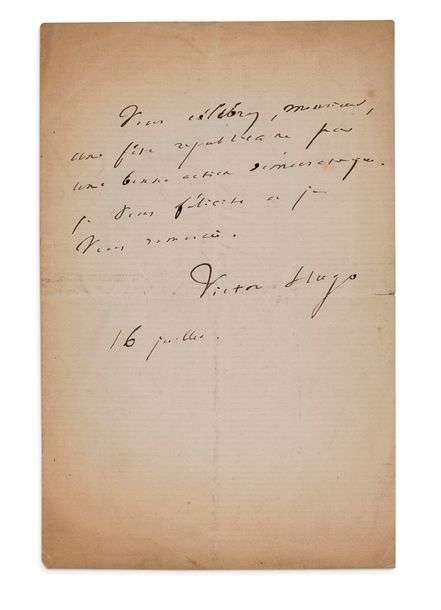 Vous célébrez, monsieur,
une fête républicaine par
une bonne action démocratique.
je vous félicite et je
vous remercie.
Victor Hugo
16 juillet.